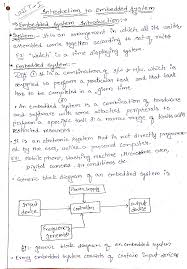 Unit-I
Introduction to Embedded System
Embedded System Introduction:-
System:- It is an arrangement in which all its unit
assembled some together according to set of rules
Ex: watch is a time displaying system
Embedded System:-
is a combination of s/w & h/w, which is
required to perform a particular task and that task
has to be completed in a given time
An embedded system is a combination of hardware
and software with some attached peripherals to
perform a specific task of a narrow range of tasks with
restricted resources
It is an electronic system that is not directly programmed
by the user, unlike a personal computer.
Ex: Mobile phone, washing machine, microwave oven,
digital camera, air conditioners etc
Generic block diagram of an embedded system
Power supply
Input
device
Controller
output
device
Frequency
generator
generic block diagram of an embedded system
Every embedded system consists of certain input devices